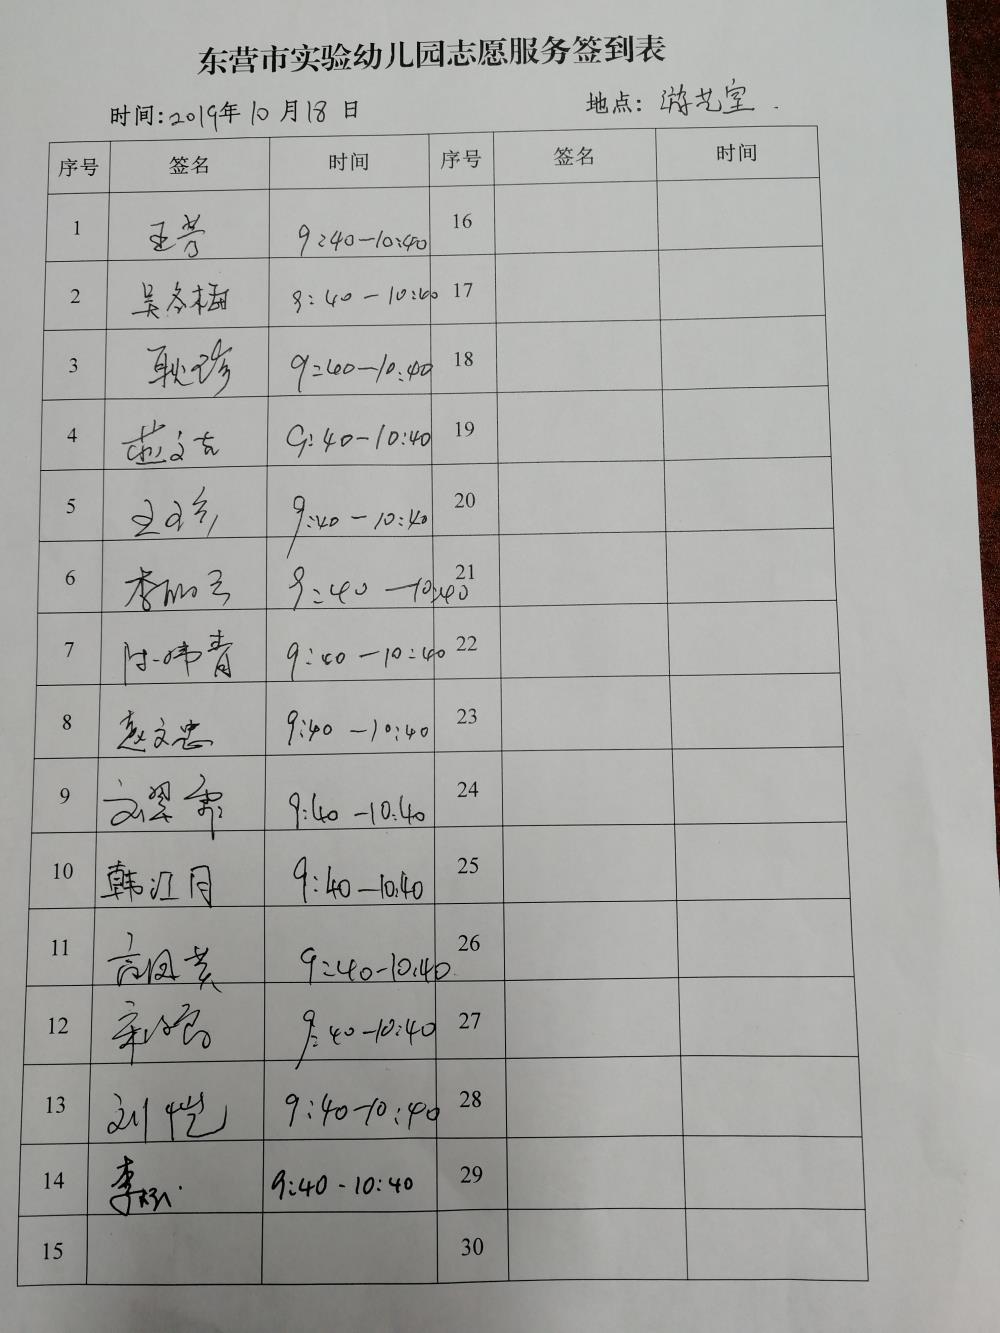 东营市实验幼儿园志愿服务签到表
时间:2019年10月18日 地点: 游艺室.
序号 签名 时间 序号 签名 时间
1 王芳 9:40-10:40 16
2 吴冬梅 9:40-10:40 17
3 耿珍 9:40-10:40 18
4 9:40-10:40 19
5 9:40-10:40 20
6 李丽云 9:40-10:40 21
7 9:40-10:40 22
8 赵文忠 9:40-10:40 23
9 刘翠霞 9:40-10:40 24
10 韩江月 9:40-10:40 25
11 9:40-10:40 26
12 9:40-10:40 27
13 刘恺 9:40-10:40 28
14 9:40-10:40 29
15 30